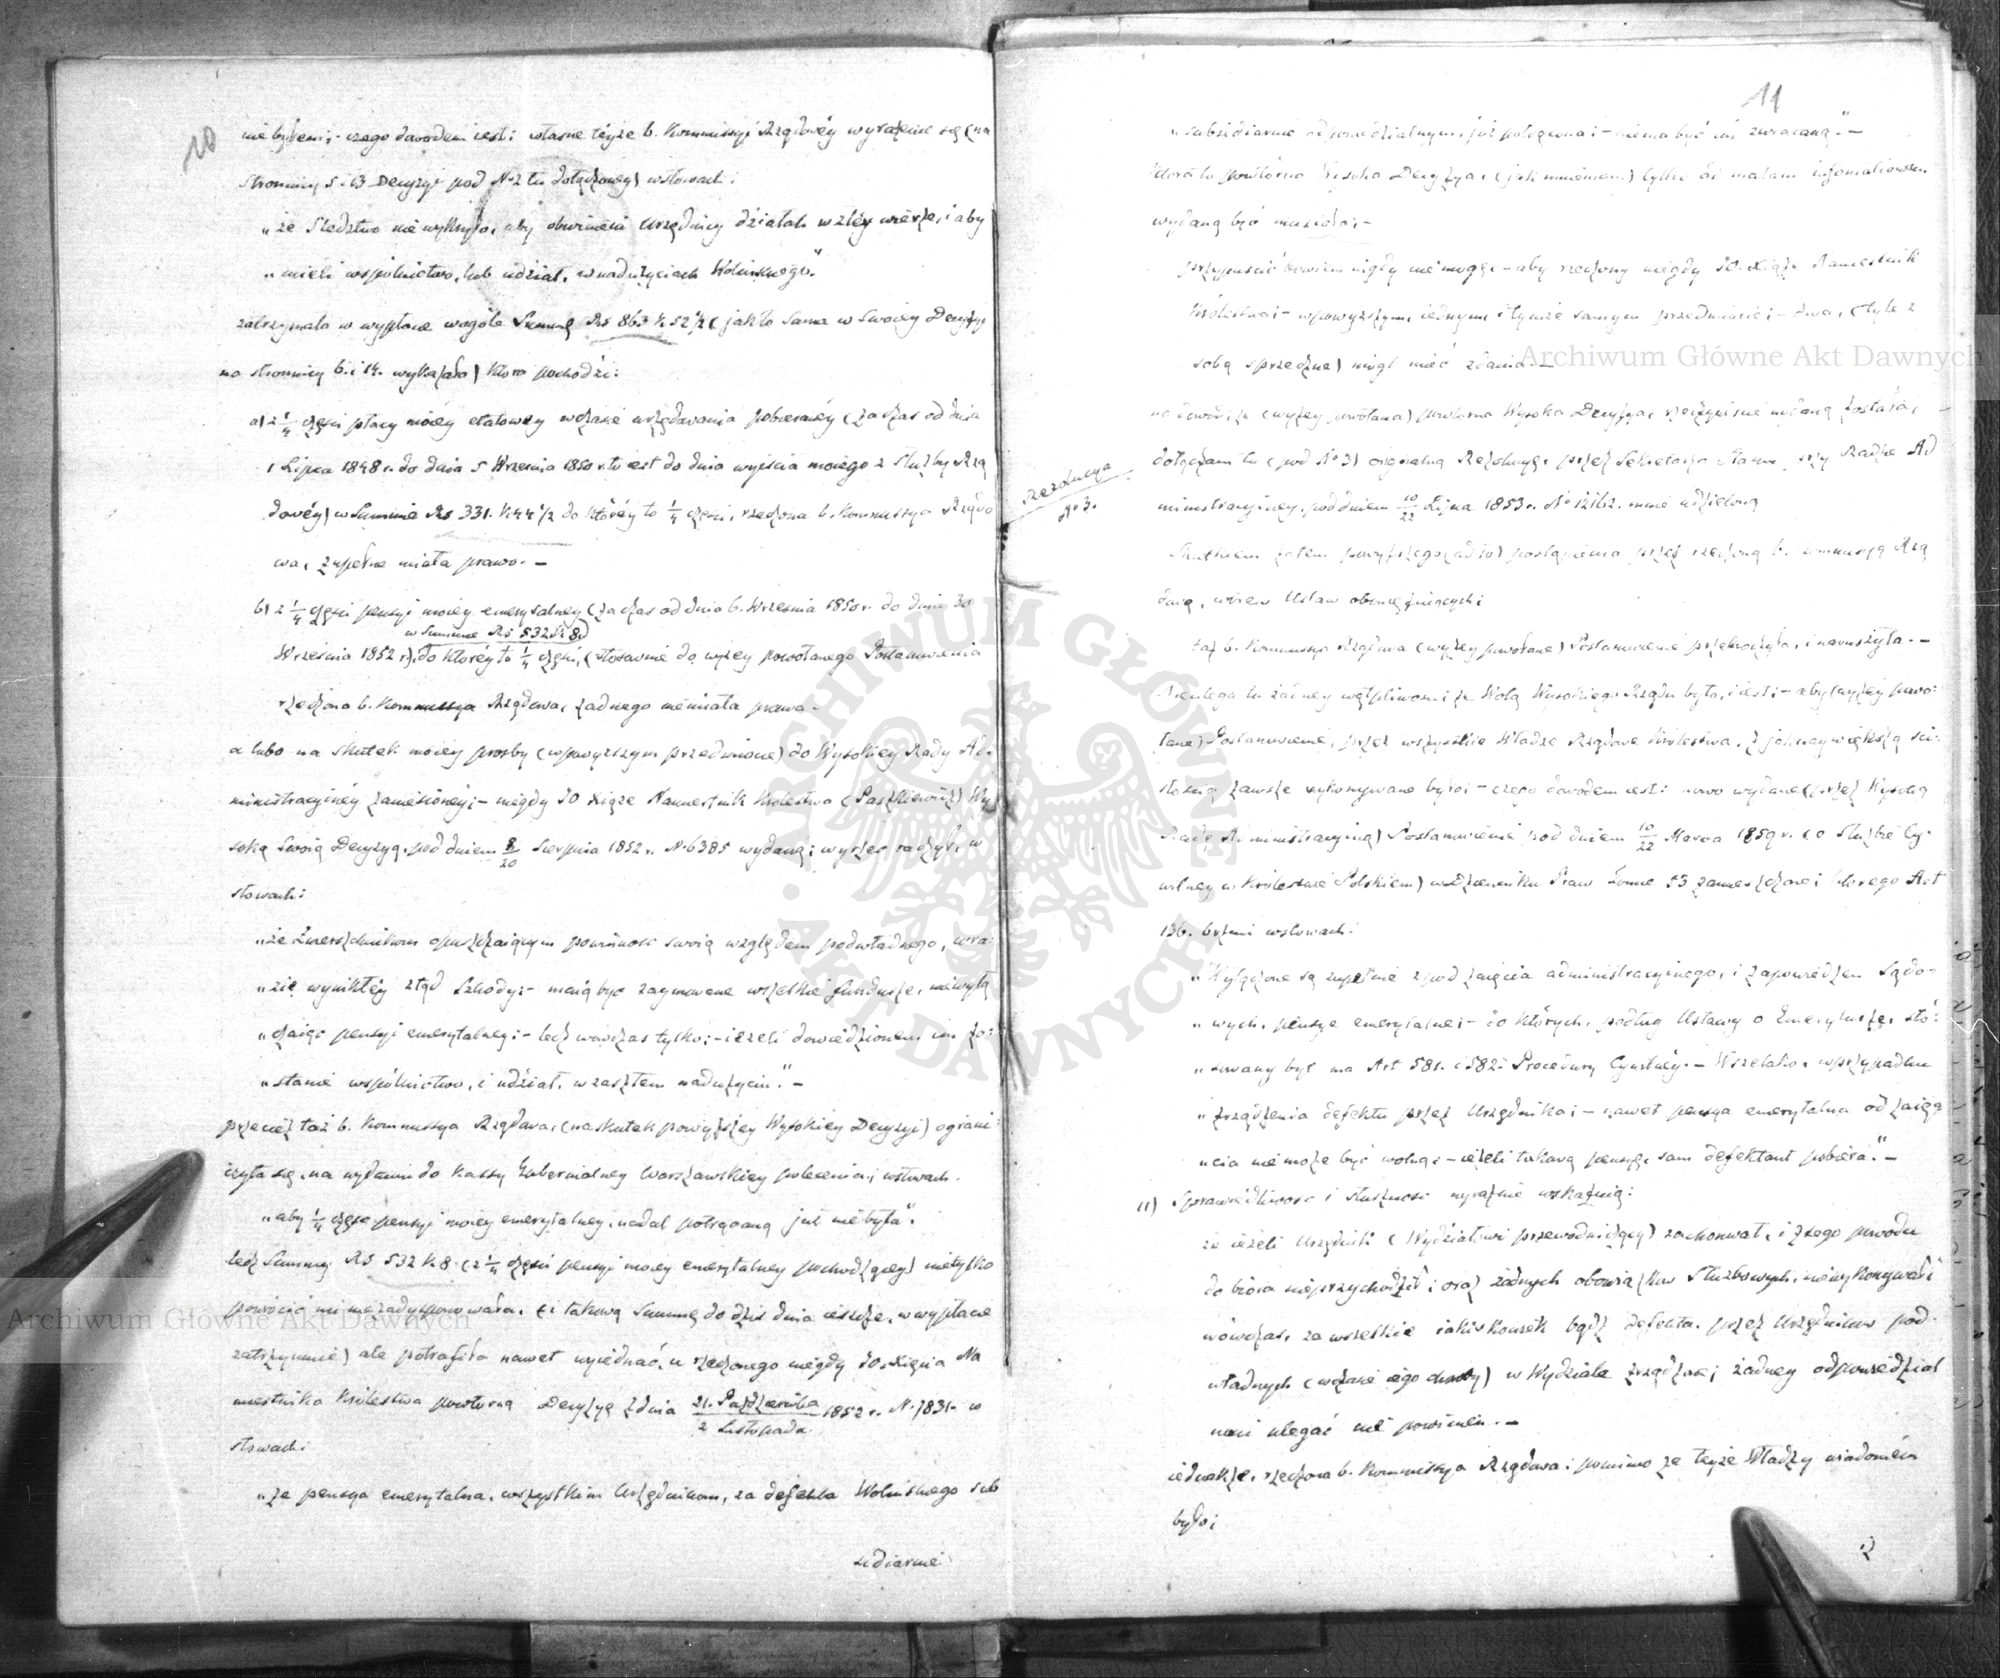 10
nie byłem; - czego dowodem iest: własne teyże b. Kommissyi Rządowéy wyrażenie się (na
stronnicy 5 i 13 Decyzyi pod No 2 tu dołączoney) w słowach:
„że Śledztwo nie wykryło, aby obwinieni Urzędnicy działali w złéy wierze, i aby
„mieli wspólnictwo, lub udział, w nadużyciach Wolinskiego."
zatrzymała w wypłacie wogóle Summę Rs 863 k 52 1/2 (jak to sama w swoiéy Decyzyi
na stronnicy 6. i 14. wykazała) która pochodzi:
a) z 1/4 części płacy moiéy etatowéy w czasie urzędowania pobieranéy (za czas od dnia
1 Lipca 1848 r. do dnia 5 Września 1850 r. to iest do dnia wyiścia moiego z Służby Rzą
dowéy) w Summie Rs 331. k 44 1/2 do któréy to 1/4 części, rzeczona b. Kommissya Rządo
wa, zupełne miała prawo. -
b) z 1/4 części pensyi moiéy emerytalney (za czas od dnia 6. Września 1850 r. do dnia 30
w Summie Rs 532 k 8.)
Września 1852 r.) do któréy to 1/4 części, (stosownie do wyżey powołanego Postanowienia
rzeczona b. Kommissya Rządowa, żadnego nie miała prawa. -
a lubo na skutek moiéy prośby (w powyższym przedmiocie) do Wysokiéy Rady Ad-
ministracyinéy zaniesionéy; - niegdy JO Xiąże Namiestnik Królestwa (Paszkiewicz) Wy
soką Swoią Decyzyą, pod dniem 8/20 Sierpnia 1852 r. N. 6385 wydaną; wyrzec raczył, w
słowach:
„że Zwierzchnikom opuszczaiącym powinność swoią względem podwładnego, w ra-
„zie wynikłéy ztąd Szkody; - maią być zaymowane wszelkie fundusze, nie wyłą
„czaiąc pensyi emerytalney; - lecz wówczas tylko; - ieżeli dowiedzionem im zo-
„stanie wspólnictwo, i udział, w zaszłem nadużyciu." -
przecież taż b. Kommissya Rządowa, (na skutek powyższey Wysokiéy Decyzyi) ograni-
czyła się, na wydaniu do Kassy Gubernialney Warszawskiey polecenia; w słowach.
„aby 1/4 część pensyi moiéy emerytalney, nadal potrącaną już nie była".
lecz Summy Rs 532 k 8. (z 1/4 części pensyi moiey emerytalney pochodzącey) nietylko
powrócić mi nie zadysponowała, (i takową Summę do dziś dnia ieszcze, w wypłacie
zatrzymuie) ale potrafiła nawet wyiednać, u rzeczonego niegdy JO. Xięcia Na
miestnika Królestwa powtórną Decyzyę z dnia 21. Października/2 Listopada 1852 r. N. 7831. w
słowach:
„że pensya emerytalna, wszystkim Urzędnikom, za defekta Wolinskiego sub
sidiarnie
11
„subsidiarnie odpowiedzialnym, już potrącona; - nie ma być im zwracaną." -
która to powtórna Wysoka Decyzya, (jak mniemam) tylko ad malam informationem
wydaną być musiała; -
przypuścić bowiem nigdy nie mogę; - aby rzeczony niegdy JO. Xiąże Namiestnik
Królestwa; - w powyższym, iednym i tymże samym przedmiocie; - dwa, (tyle z
sobą sprzeczne) mógł mieć zdania. -
na dowód że (wyżey powołana) powtórna Wysoka Decyzya, rzeczywiście wydaną została,
dołączam tu (pod No 3) oryginalną Rezolucyę, przez Sekretarza Stanu, przy Radzie Ad
ministracyiney, pod dniem 10/22 Lipca 1853 r. No 12162. mnie udzieloną
Rezolucya
No 3.
Skutkiem zatem powyższego postąpienia przez rzeczoną b. Kommissyą Rzą
dową, wbrew Ustaw obowięzuiących;
taż b. Kommissya Rządowa (wyżey powołane) Postanowienie przekroczyła, i naruszyła. -
Nieulega tu żadney wątpliwości że Wolą Wysokiego Rządu było, i iest; - aby (wyżey powo-
łane) Postanowienie, przez wszystkie Władze Rządowe Królestwa, z jaknaywiększą ści-
słością zawsze wykonywane było; - czego dowodem iest: nowo wydane (przez Wysoką
Radę Administracyiną) Postanowienie pod dniem 10/22 Marca 1859 r. (o Służbie Cy-
wilney w Królestwie Polskiem) w Dzienniku Praw Tomie 53 zamieszczone; którego Art
136. brzmi w słowach:
„Wyłączone są zupełnie z pod zaięcia administracyinego, i zapowiedzeń Sądo-
„wych, pensye emerytalne; - do których, podług Ustawy o Emeryturze, sto-
„sowany być ma Art 581. i 582. Procedury Cywilnéy. - Wszelako, w przypadku
„zrządzenia defektu przez Urzędnika; - nawet pensya emerytalna od zaię
„cia nie może być wolną; - ieżeli takową pensyę, sam defektant pobiera." -
11) Sprawiedliwość i słuszność wyraźnie wskazuią:
że ieżeli Urzędnik (Wydziałowi przewodniczący) zachorował, i z tego powodu
do biura nieprzychodził; oraz żadnych obowiązków Służbowych, niewykonywał;
wówczas, za wszelkie iakiekolwiek bądź defekta, przez Urzędników pod-
władnych (w czasie iego choroby) w Wydziale zrządzone; żadney odpowiedzial
ności ulegać nie powinien. -
iednakże, rzeczona b. Kommissya Rządowa; pomimo że teyże Władzy wiadomem
było;